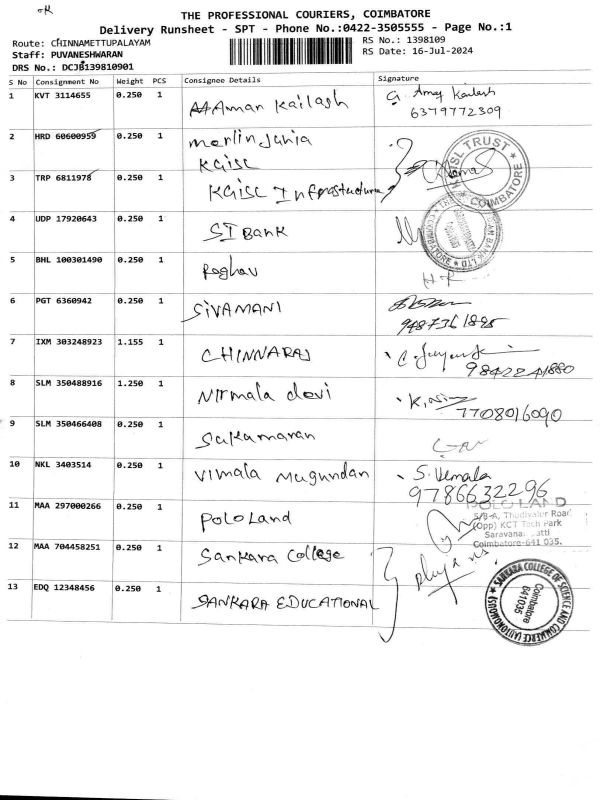 OK
THE PROFESSIONAL COURIERS, COIMBATORE
Delivery Runsheet - SPT - Phone No.:0422-3505555 - Page No.:1
Route: CHINNAMETTUPALAYAM
RS No.: 1398109
Staff: PUVANESHWARAN
RS Date: 16-Jul-2024
DRS No.: DCJB139810901
S No Consignment No Weight PCS Consignee Details Signature
1 KVT 3114655 0.250 1 Aman Kailash G. Kailash
6379772309
2 HRD 60600959 0.250 1 merlin Jahia
KGISL
3 TRP 6811978 0.250 1 KGISL Infrastructure
KGISL TRUST COIMBATORE
4 UDP 17920643 0.250 1 SI Bank
BANK LTD COIMBATORE
5 BHL 100301490 0.250 1 Raghav
6 PGT 6360942 0.250 1 SIVAMANI
9487361895
7 IXM 303248923 1.155 1 CHINNARAJ
9842241880
8 SLM 350488916 1.250 1 Nirmala devi
7708016090
9 SLM 350466408 0.250 1 Sukamaran
10 NKL 3403514 0.250 1 Vimala Mugundan S. Vemala
9786632296
11 MAA 297000266 0.250 1 Pololand
POLO LAND
5/8-A, Thudiyalur Road
(Opp) KCT Tech Park
Saravanampatti
Coimbatore-641 035.
12 MAA 704458251 0.250 1 Sankara College
13 EDQ 12348456 0.250 1 SANKARA EDUCATIONAL
SANKARA COLLEGE OF SCIENCE AND COMMERCE (AUTONOMOUS)
Coimbatore
641035